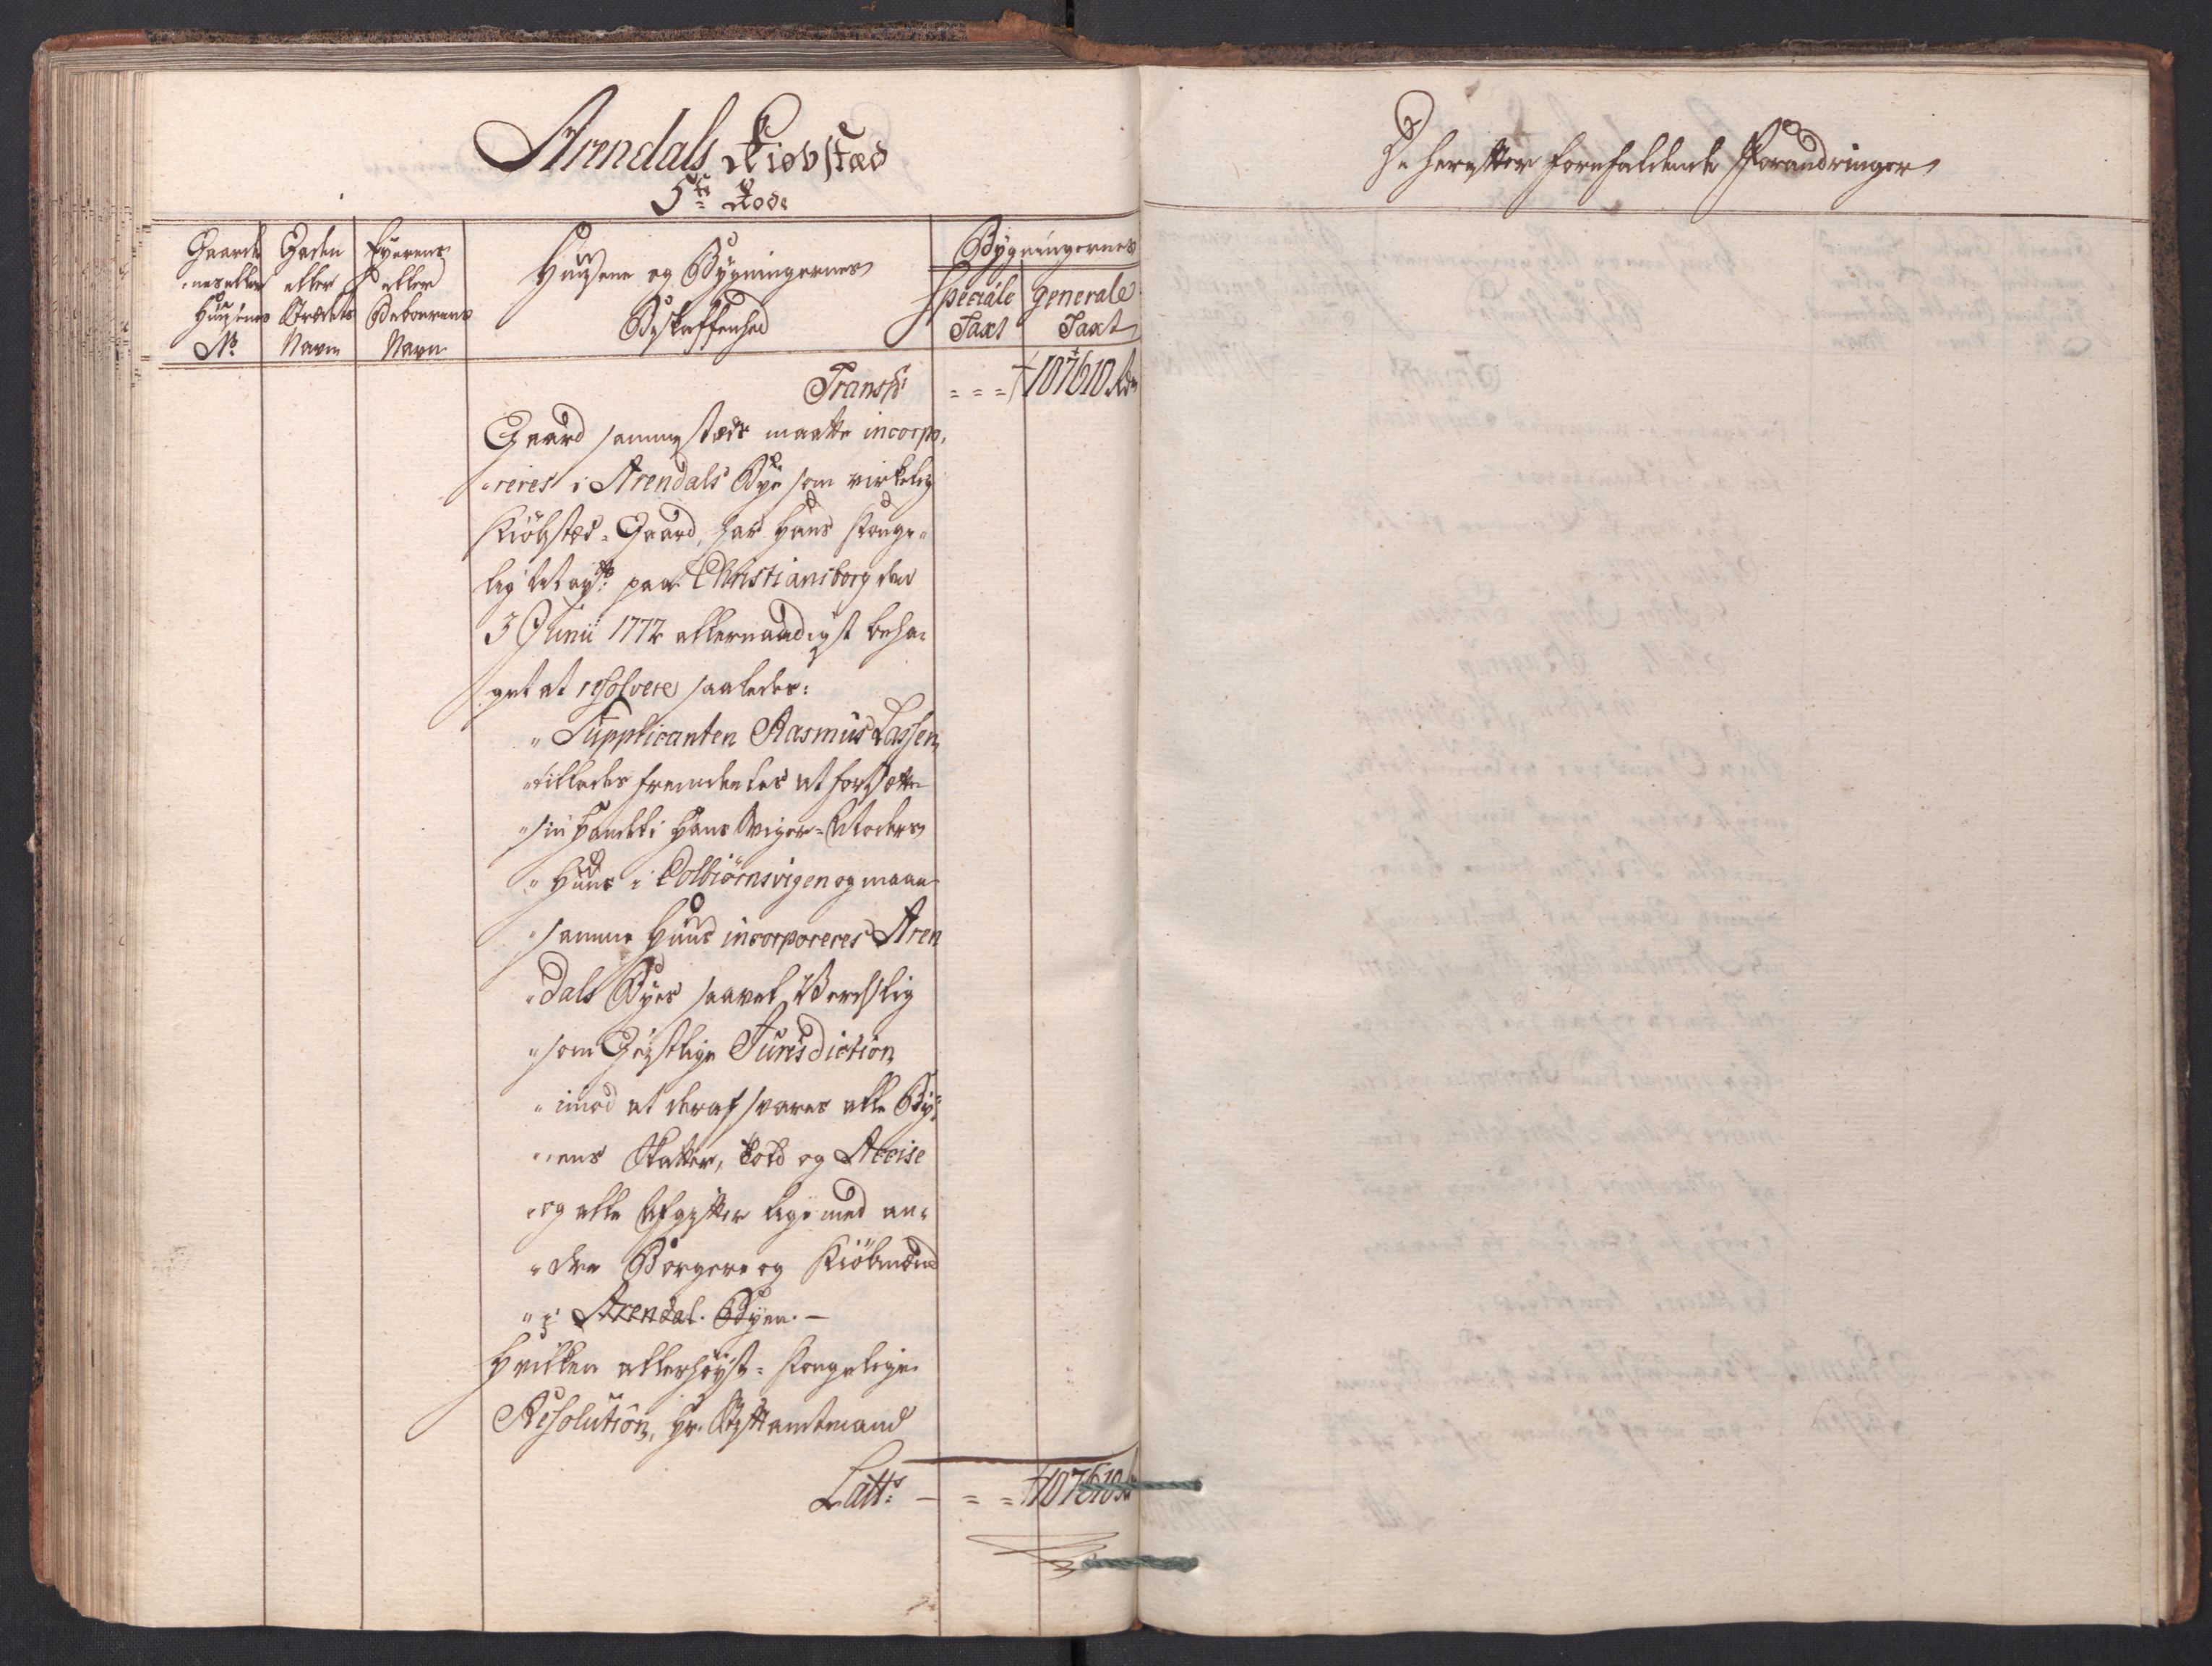 Arendals Kiöbstæd
5te Rode
Gaarde
nes eller
Huusenes
No
Gaden
eller
Strædets
Navn
Eyerens
eller
Beboerens
Navn
Huusene og Bygningernes
Beskaffenhed
Bygningernes
Speciale Taxt
generale Taxt
Transpt = = = 107610 Rdr
Gaard sammestæds maatte incorpo-
reres i Arendals Bye som virkelig
Kiöbstæd-Gaard, har Hans Konge-
lig Mayts paa Christiansborg den
3 Junii 1772 allernaadigst beha-
get at resolvere saaledes:
" Supplicanten Rasmus Lassen
" tillades fremdeeles at fortsætte
" sin Handel i Hans Sviger-Moders
" Huus i Colbiörnsvigen og maae
" samme Huus incorporeres Aren
" dals Byes saavel Verdslig
" som Geistlige Jurisdiction
" imod at deraf svares alle By-
" ens Skatter, Told og Accise
" og alle Afgifter lige med an-
" dre Borgere og Kiöbmænd
" i Arendal Byen. —
Hvilken allerhöyst-Kongelige
Resolution, Hr. Stiftamtmand
Latts — = = 107610 Rdr
De herefter forefaldende Forandringer